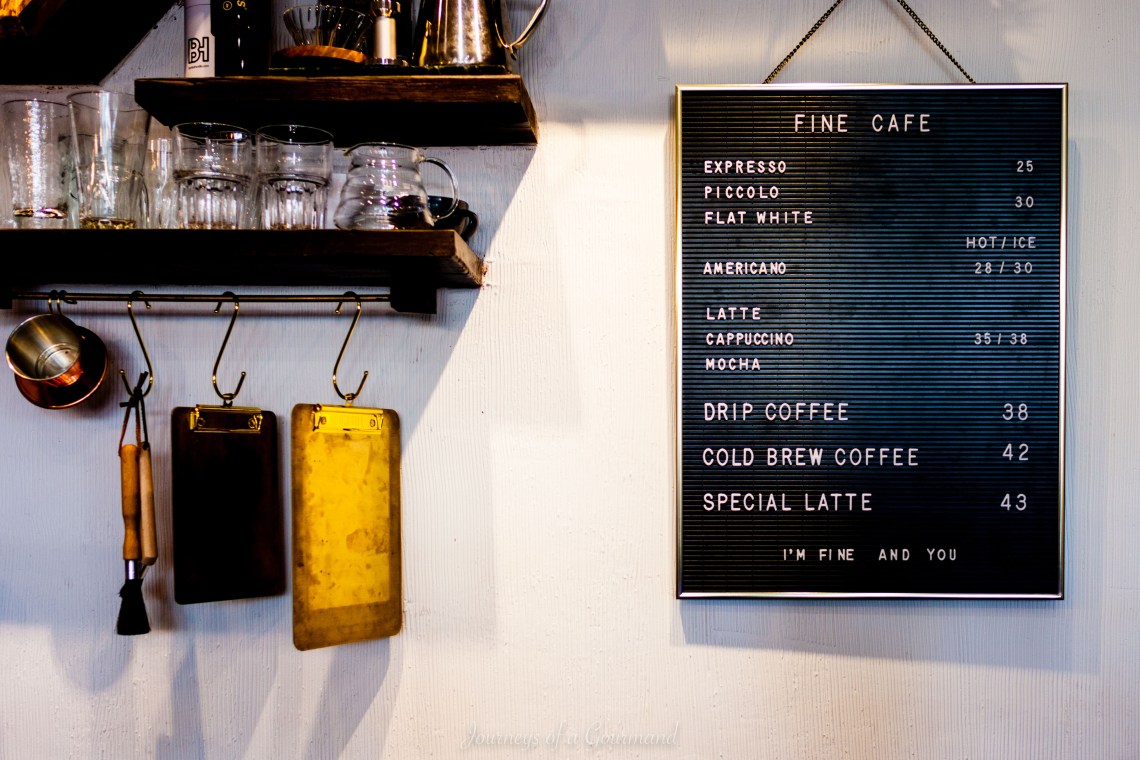 BH
S
FINE CAFE
EXPRESSO 25
PICCOLO
30
FLAT WHITE
HOT / ICE
AMERICANO 28 / 30
LATTE
CAPPUCCINO 35 / 38
MOCHA
DRIP COFFEE 38
COLD BREW COFFEE 42
SPECIAL LATTE 43
I'M FINE AND YOU
Journeys of a Gourmand